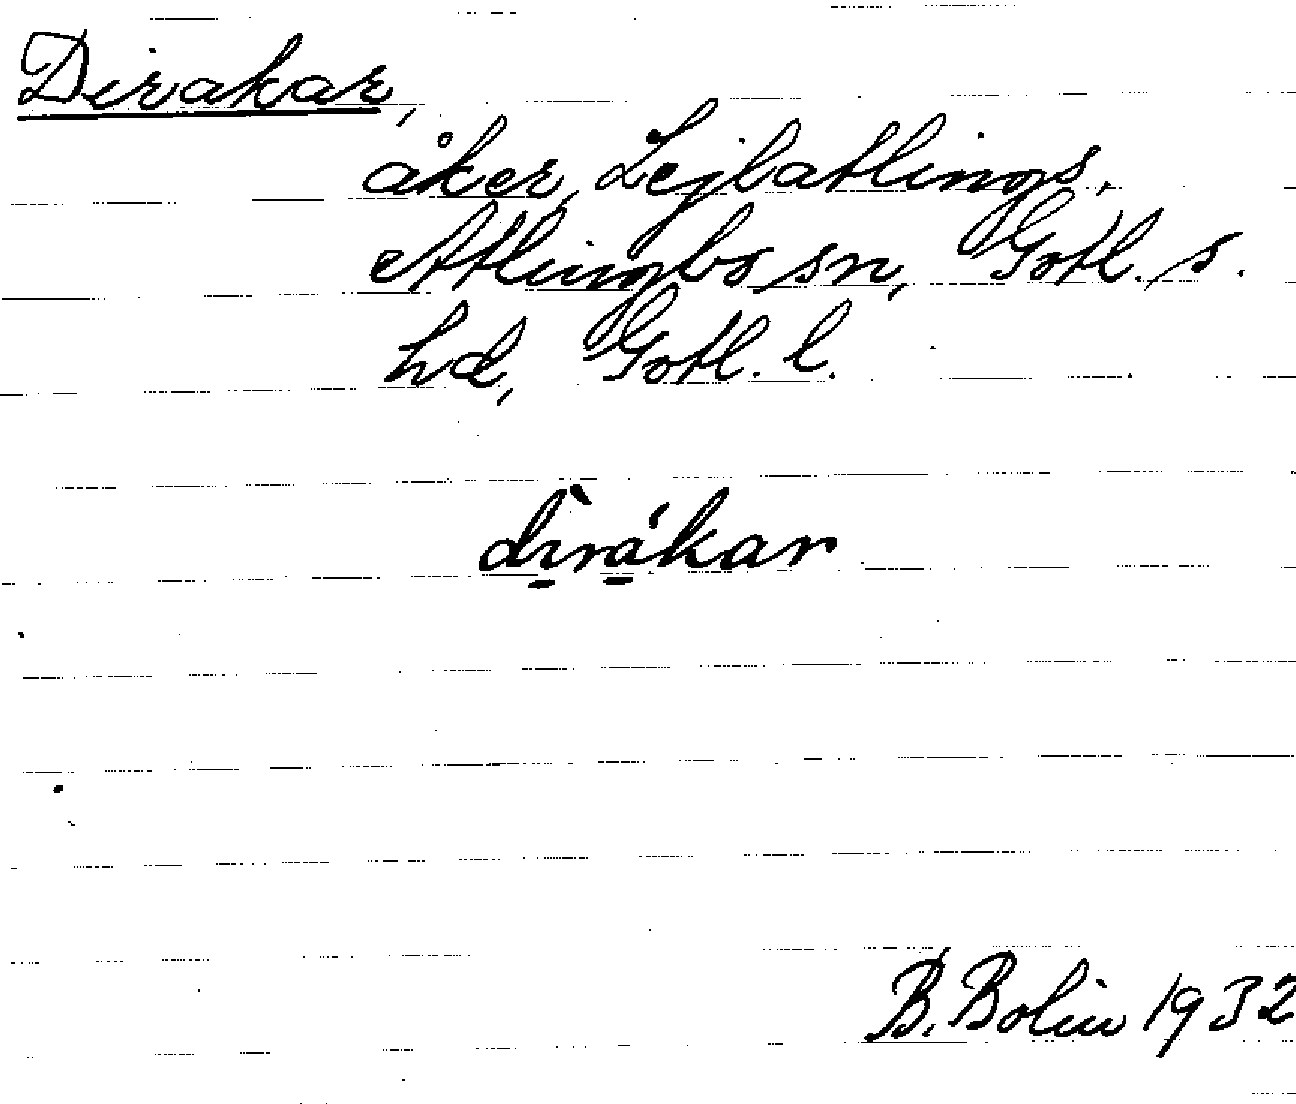 Dirakar,
åker, Lejlatlings,
Atlingbo sn, Gotl. s.
hd, Gotl. l.
dìrákar
B. Bolin 1932